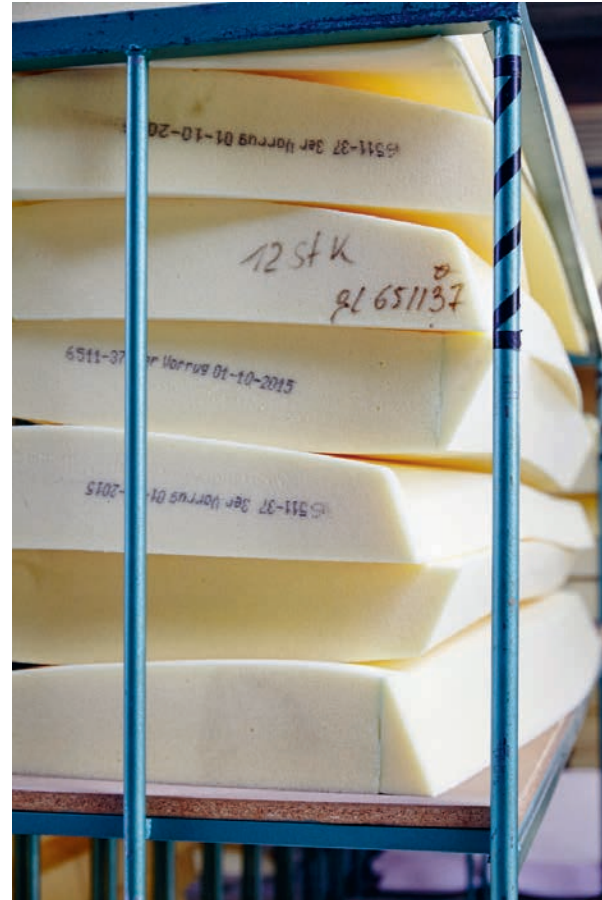 6511-37 3er Vorrug 01-10-20
12 Stk
gl 651137
6511-37 er Vorrug 01-10-2015
6511-37 3er Vorrug 01 -2015